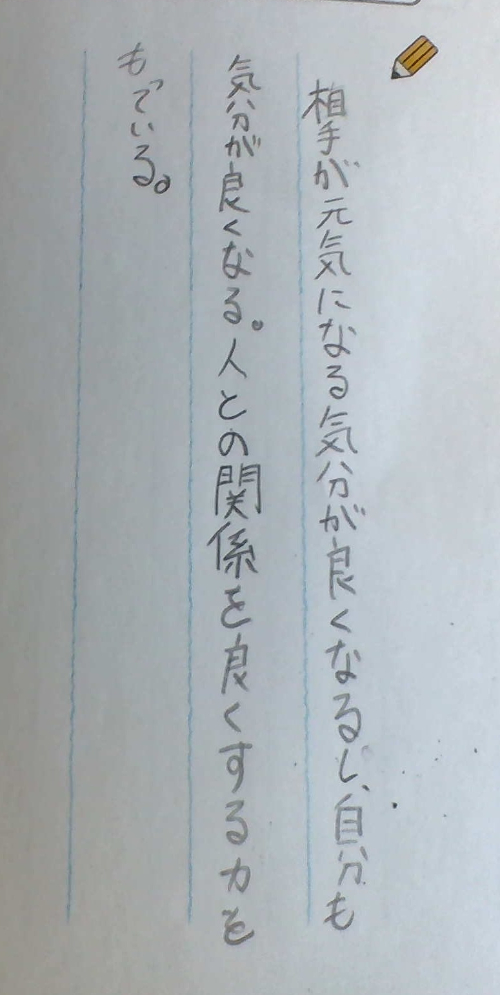 相手が元気になる気分が良くなるし、自分も
気分が良くなる。人との関係を良くする力を
もっている。